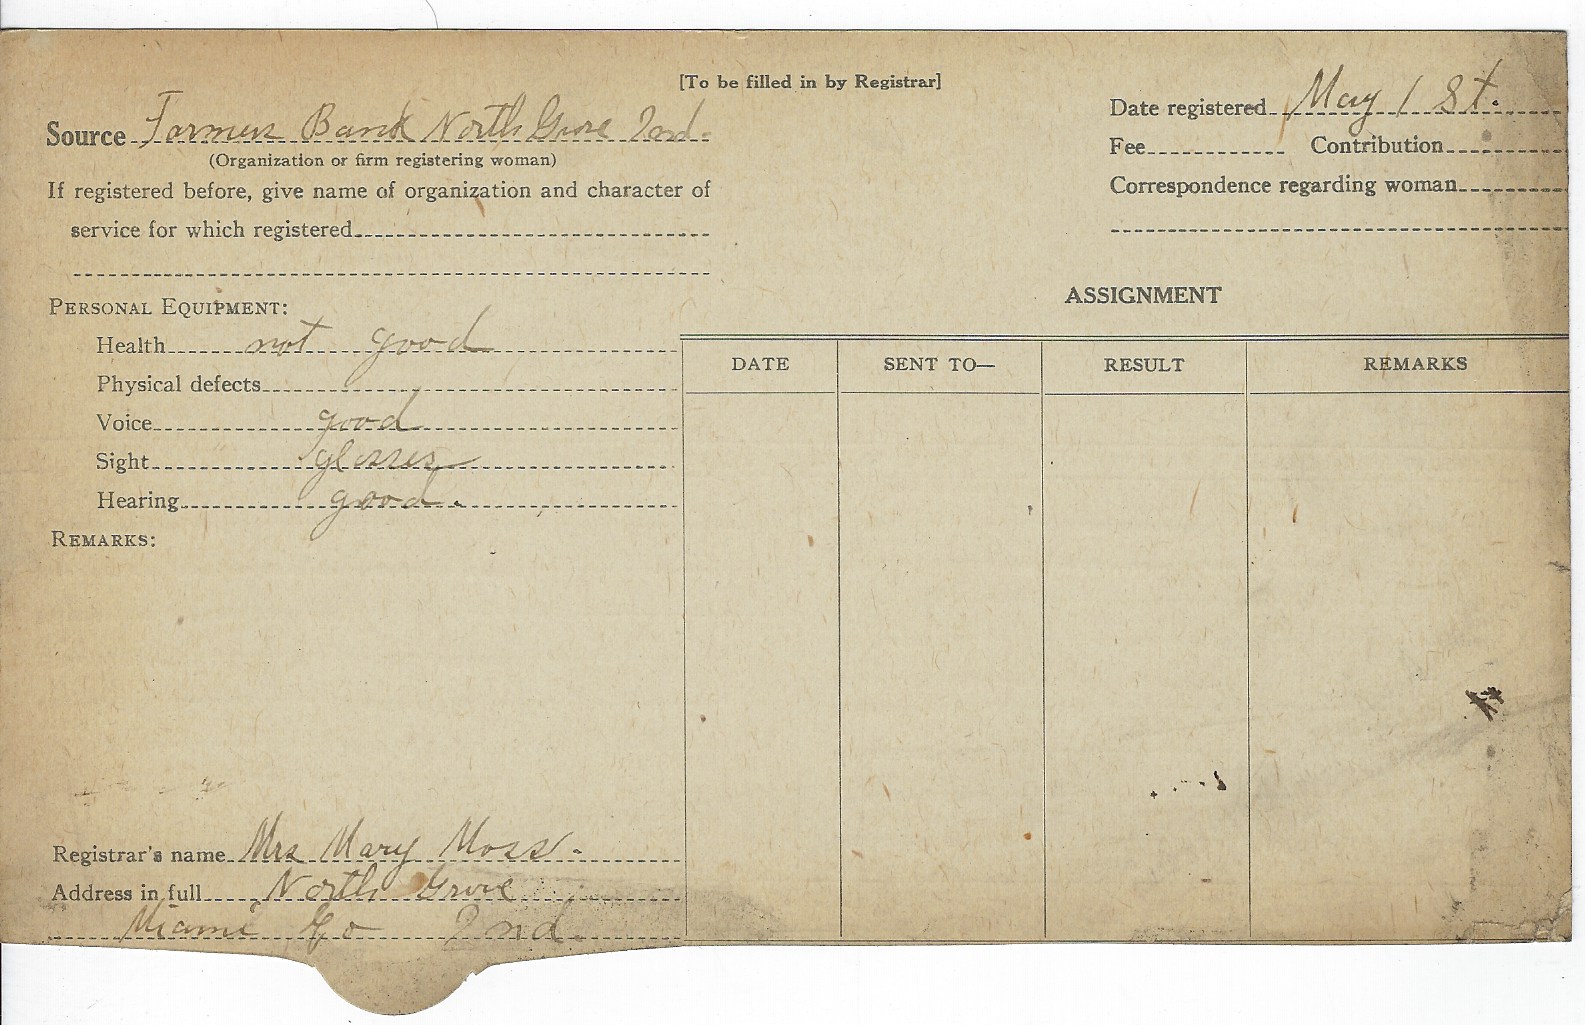 [To be filled in by Registrar]
Source Farmers Bank North Grove Ind.
(Organization or firm registering woman)
If registered before, give name of organization and character of
service for which registered
Date registered May 1 St.
Fee Contribution
Correspondence regarding woman
PERSONAL EQUIPMENT:
Health not good
Physical defects
Voice good
Sight glasses
Hearing good.
REMARKS:
ASSIGNMENT
DATE SENT TO— RESULT REMARKS
Registrar's name Mrs Mary Moss.
Address in full North Grove
Miami Co Ind.